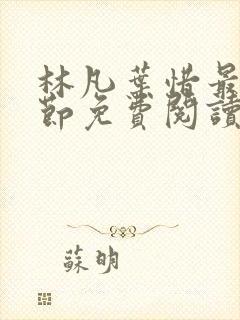 林凡葉惜最
節免費閱讀
蘇明